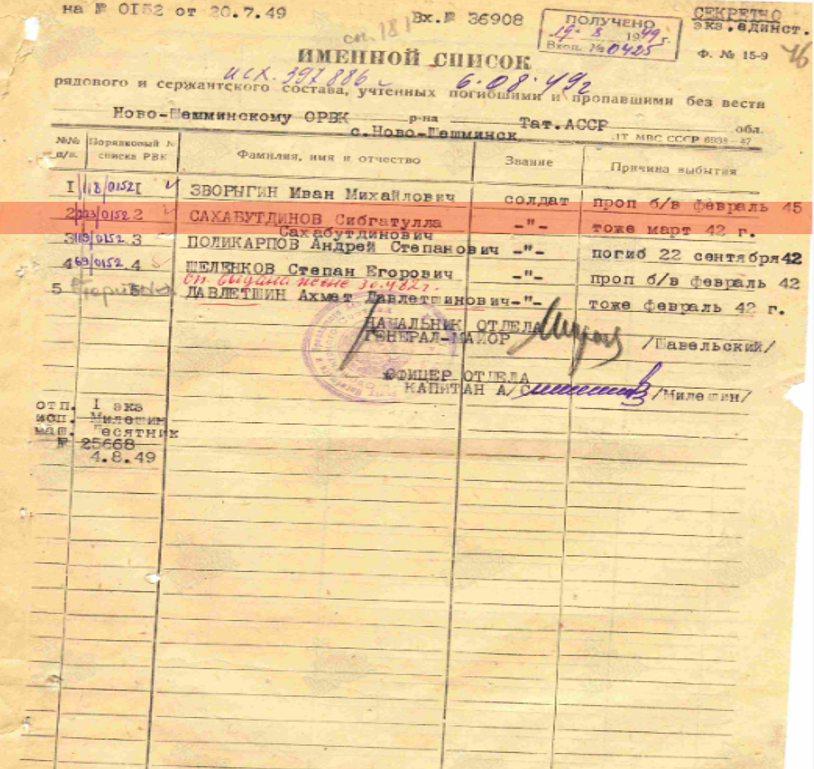 на № 0152 от 20.7.49
Вх.№ 36908
СЕКРЕТНО
экз.единст.
Ф. № 15-9
76
ПОЛУЧЕНО
19 8 1949г.
Вход. № 0425
сп. 181
ИМЕННОЙ СПИСОК
исх. 397886 6.08.49г
рядового и сержантского состава, учтенных погибшими и пропавшими без вести
Ново-Шешминскому ОРВК р-на Тат.АССР обл.
с.Ново-Шешминск
№№ п/п. Порядковый № списка РВК Фамилия, имя и отчество Звание Причина выбытия
1 118/0152 1 ЗВОРЫГИН Иван Михайлович солдат проп б/в февраль 45
2 /0152 2 САХАБУТДИНОВ Сибгатулла -"- тоже март 42 г.
Сахабутдинович
3 /0152 3 ПОЛИКАРПОВ Андрей Степанович -"- погиб 22 сентября42
4 69/0152 4 ШЕЛЕНКОВ Степан Егорович -"- проп б/в февраль 42
5 5 ДАВЛЕТШИН Ахмет Давлетшинович-"- тоже февраль 42 г.
НАЧАЛЬНИК ОТДЕЛА
ГЕНЕРАЛ-МАЙОР /Шавельский/
ОФИЦЕР ОТДЕЛА
КАПИТАН А/С /Милешин/
отп. 1 экз
исп. Милешин
маш. Десятник
№ 25668
4.8.49